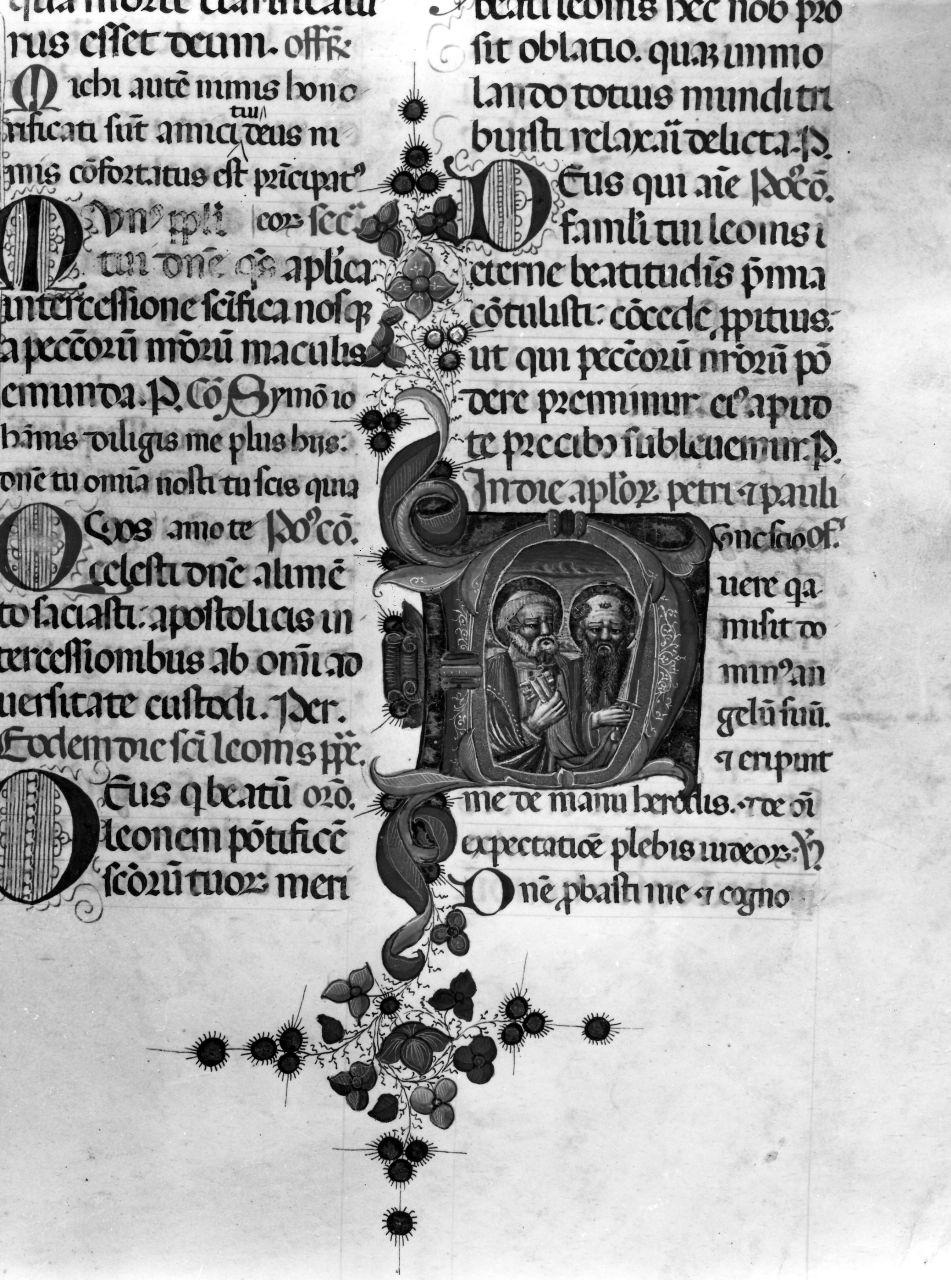 rus esset deum. offr̄.
Michi autē nimis hono
rificati sūt amici tui deus ni
mis cōfortatus est prīcipatꝰ
Mun⁹ eoꝝ
tui dn̄e qs̄ aplīca
intercessione scīfica nosqꝫ
a peccōrū nrōrū maculis
emunda. P. Cō Symō io
hānis diligis me plus hiis:
dn̄e tu omīa nosti tu scis quia
Quos amo te Po⁹cō.
Celesti dn̄e alimē
to saciasti: apostolicis in
tercessionibus ab omī ad
uersitate custodi. Per.
Eodem die scī leonis pp̄.
Deus q beatū
leonem pōtificē
scōrū tuoꝝ meri
beati leonis hec nob pro
sit oblatio. quaꝝ immo
lando totius mundi tri
buisti relaxari delicta. P.
Deus qui aīe Po⁹cō.
famuli tui leonis
eterne beatitudīs p̄mia
cōtulisti: cōcede ꝓpitius.
ut qui peccōrū nrōrū pō
dere premimur. ei⁹ apud
te precibꝫ subleuemur. P.
In die aplōꝝ petri ⁊ pauli
Nūc scio Of̄.
uere qa
misit do
min⁹ an
gelū suū.
⁊ eripuit
me de manu herodis. ⁊ de oī
expectatiōe plebis iudeoꝝ. Ps
Dnē ꝓbasti me ⁊ cogno